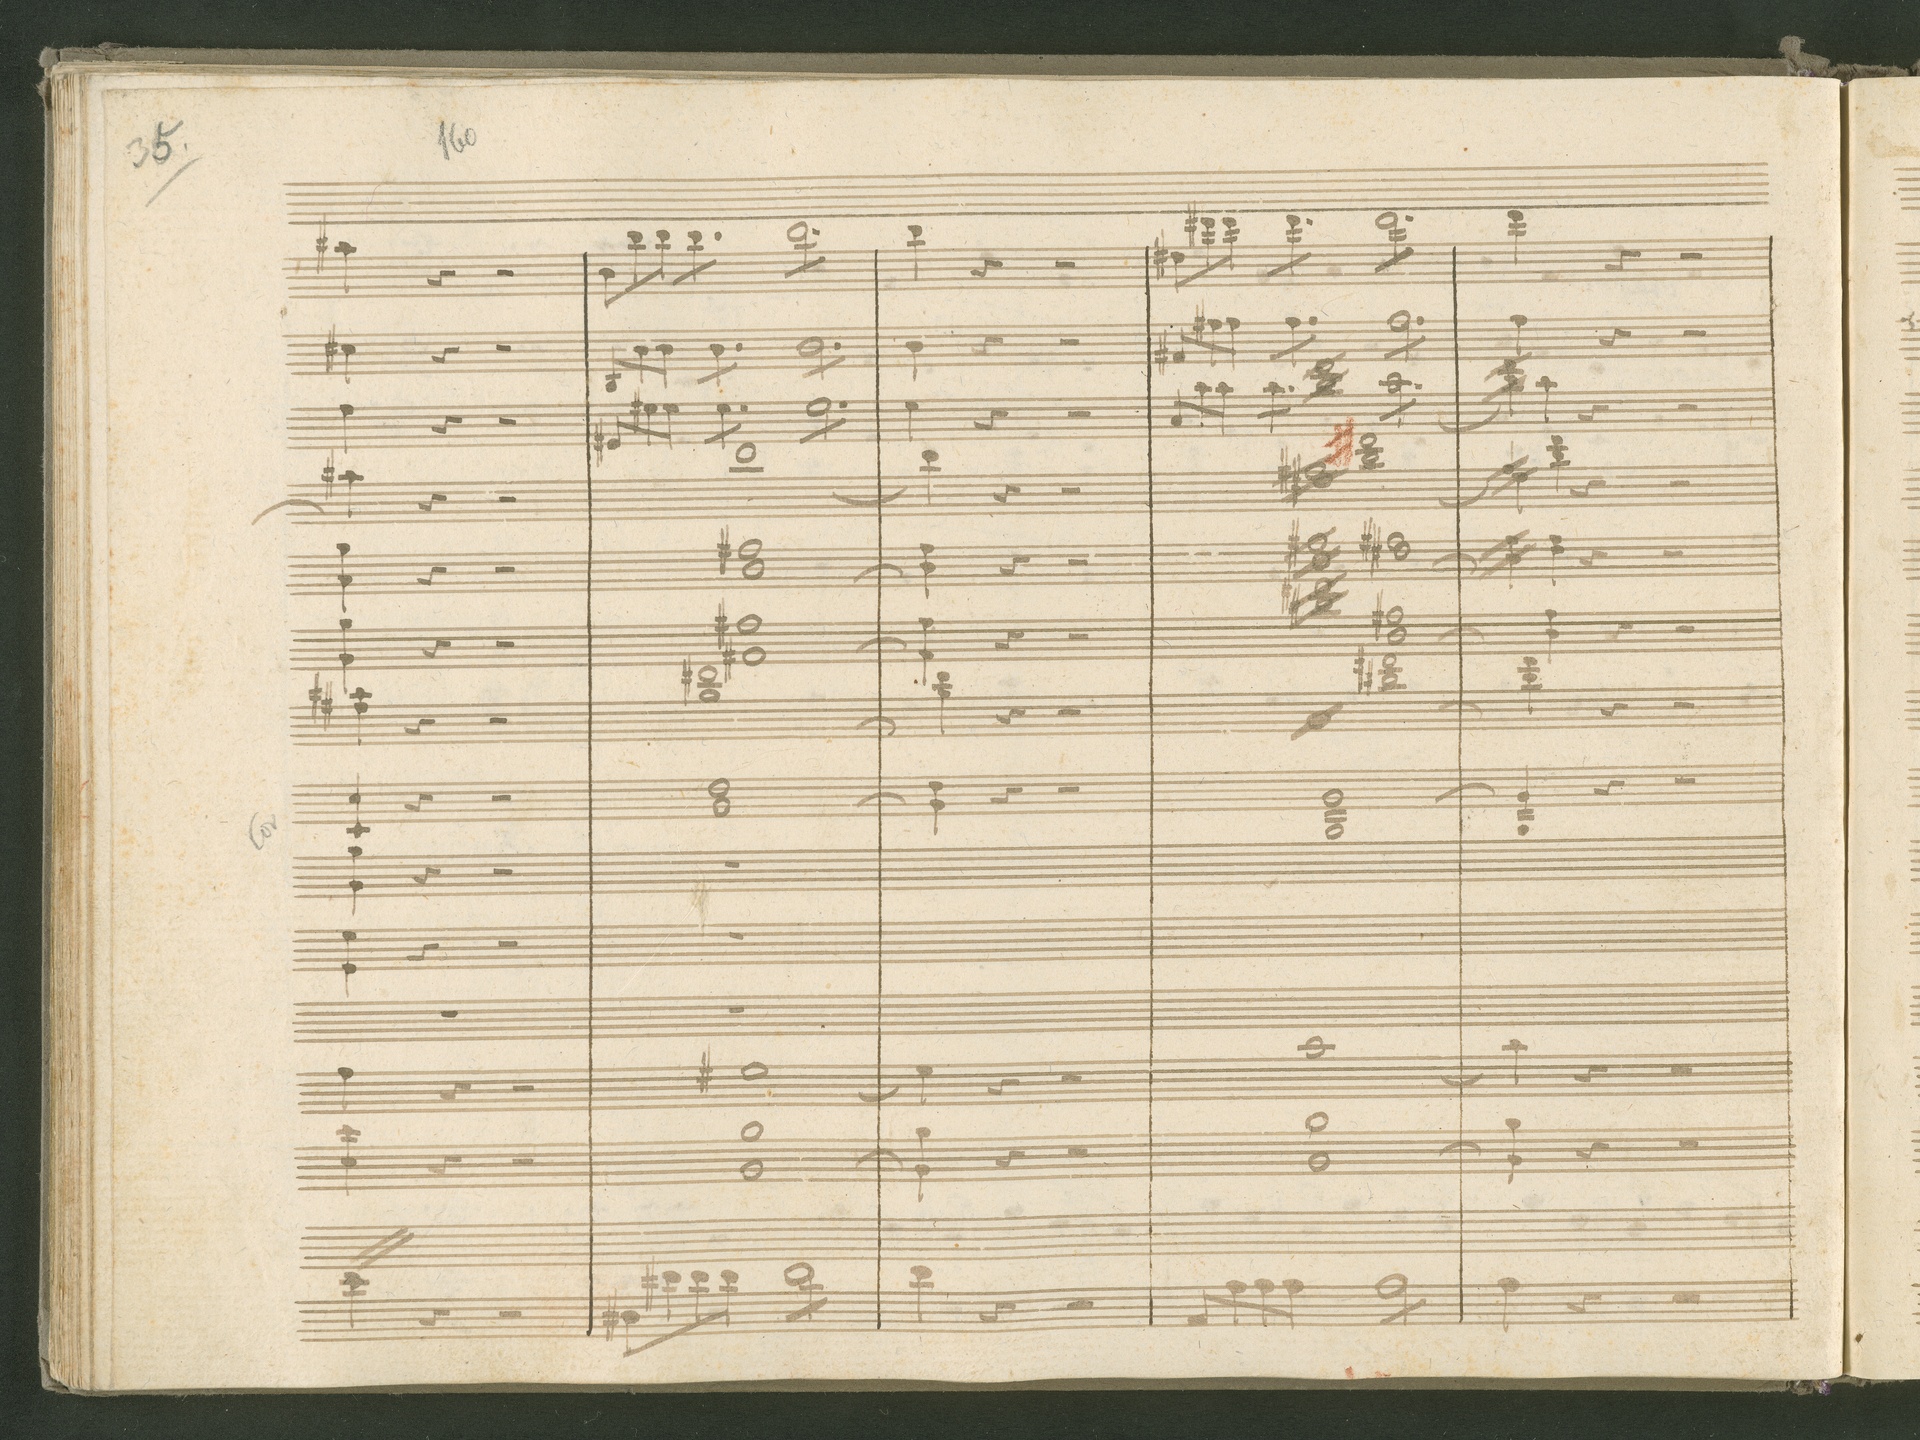 35.
160
Cor